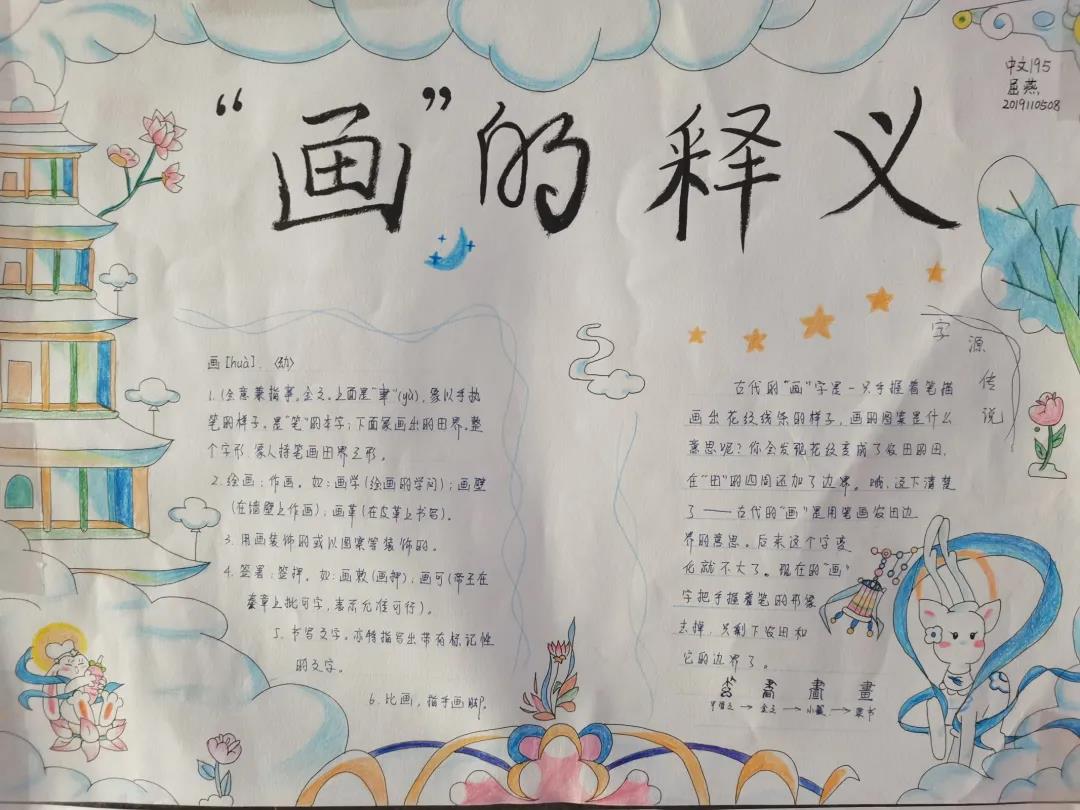 中文195
屈燕
2019110508
“画”的释义
画[huà].〈动〉
1.(会意兼指事。金文.上面是“聿”(yù),象以手执
笔的样子。是“笔”的本字;下面象画出的田界。整
个字形,象人持笔画田界之形。
2.绘画;作画。如:画学(绘画的学问);画壁
(在墙壁上作画);画革(在皮革上书写)。
3.用画装饰的或以图案等装饰的。
4.签署;签押。如:画敕(画押);画可(帝王在
奏章上批可字,表示允准可行)。
5.书写文字。亦特指写出带有标记性
的文字。
6.比画,指手画脚。
字源传说
古代的“画”字是一只手握着笔描
画出花纹线条的样子,画的图案是什么
意思呢?你会发现花纹变成了农田的田,
在“田”的四周还加了边界。哦,这下清楚
了——古代的“画”是用笔画农田边
界的意思。后来这个字变
化就不大了。现在的“画”
字把手握着笔的形象
去掉,只剩下农田和
它的边界了。
甲骨文→金文→小篆→隶书